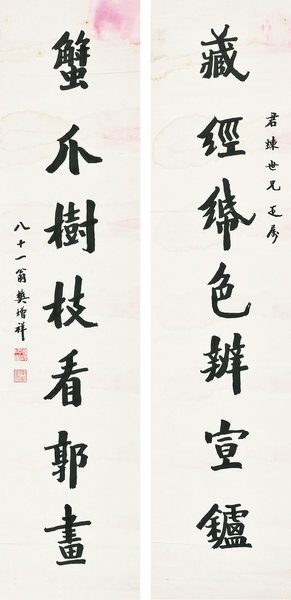 藏經紙色辨宣鑪
君竦世兄正屬
蟹爪樹枝看郭畫
八十一翁樊增祥